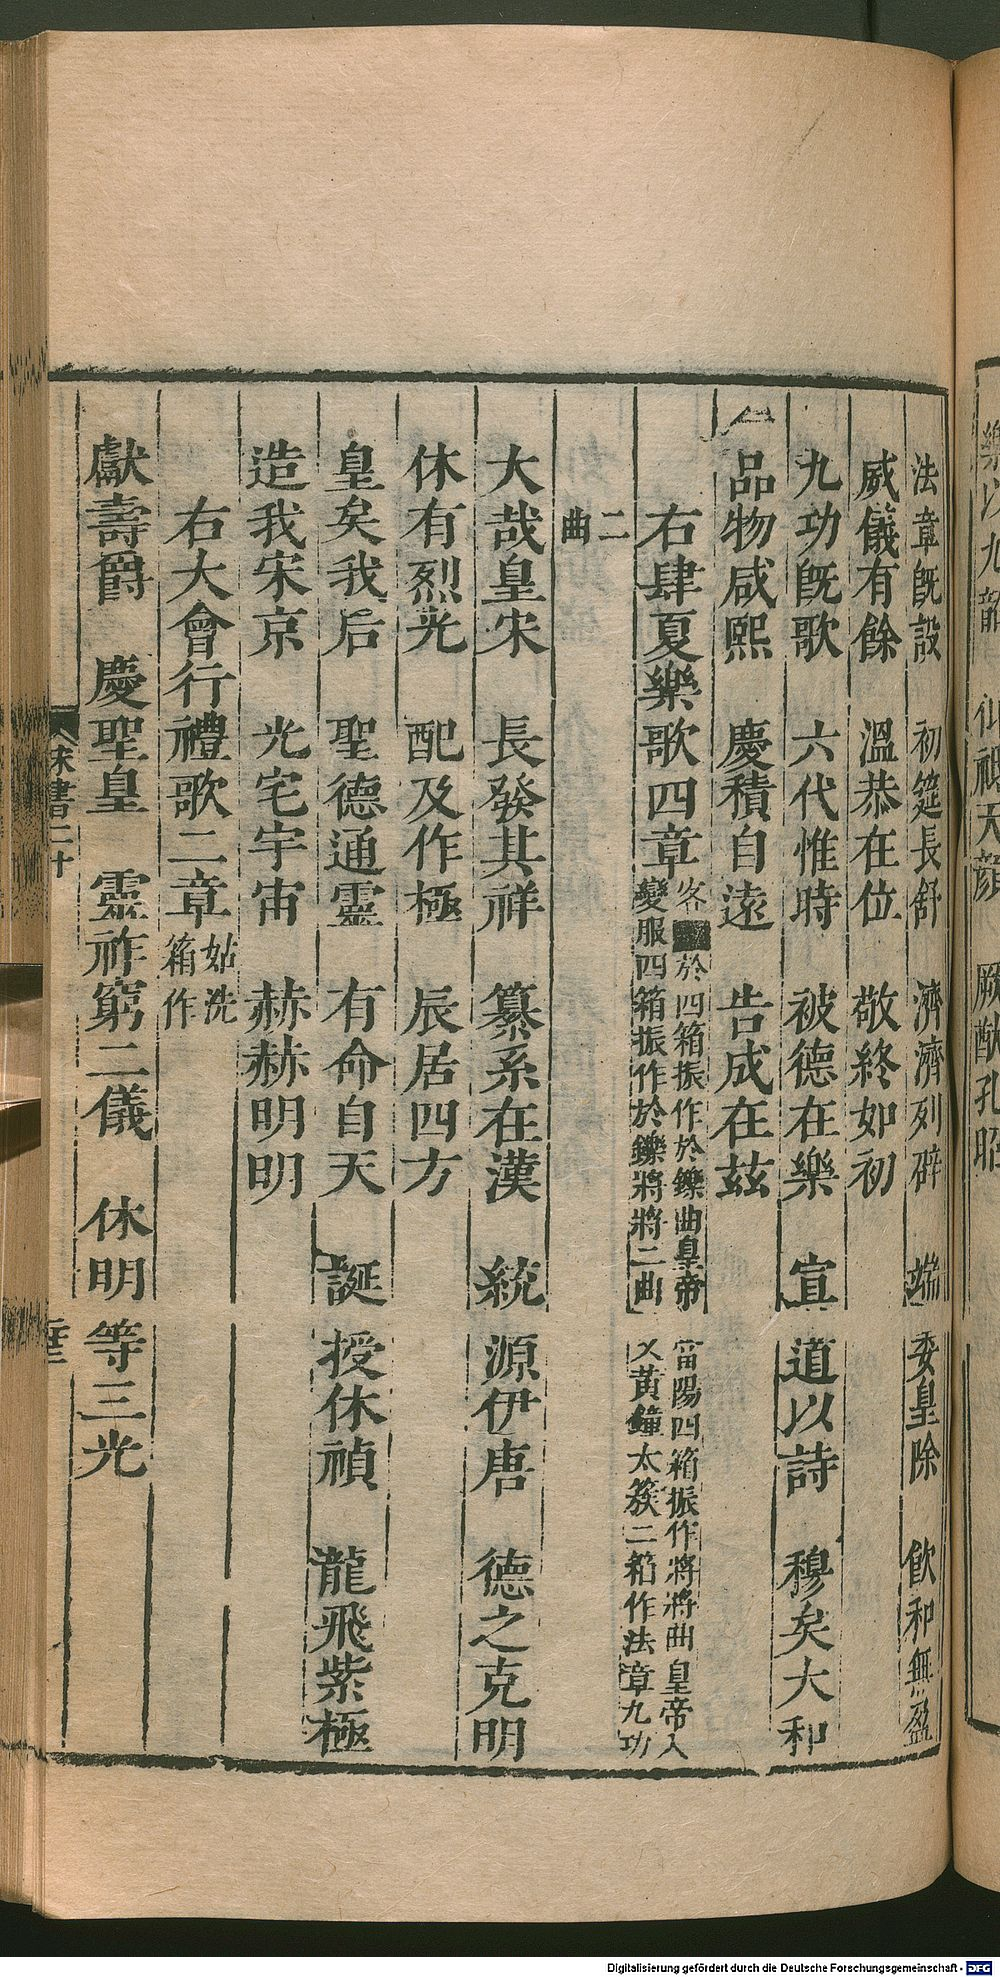 樂以九韶　仰祗天顔　厥猷孔昭
法章旣設　初筵長舒　濟濟列辟　端委皇除　飮和無盈
威儀有餘　溫恭在位　敬終如初
九功旣歌　六代惟時　被德在樂　宣道以詩　穆矣大和
品物咸熙　慶積自遠　告成在茲
右肆夏樂歌四章
客 於四箱振作於鑠曲皇帝當陽四箱振作將將曲皇帝入
變服四箱振作於鑠將將二曲又黃鐘太簇二箱作法章九功
二
曲
大哉皇宋　長發其祥　纂系在漢　統源伊唐　德之克明
休有烈光　配及作極　辰居四方
皇矣我后　聖德通靈　有命自天　誕授休禎　龍飛紫極
造我宋京　光宅宇宙　赫赫明明
右大會行禮歌二章
姑洗
箱作
獻壽爵　慶聖皇　靈祚窮二儀　休明等三光
宋書二十
Digitalisierung gefördert durch die Deutsche Forschungsgemeinschaft - DFG